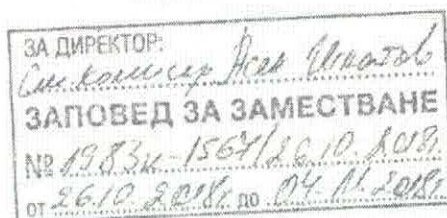 ЗА ДИРЕКТОР:
Ст. комисар Асен
ЗАПОВЕД ЗА ЗАМЕСТВАНЕ
№ 1983з-1567/26.10.2018г.
от 26.10.2018г. до 04.11.2018г.